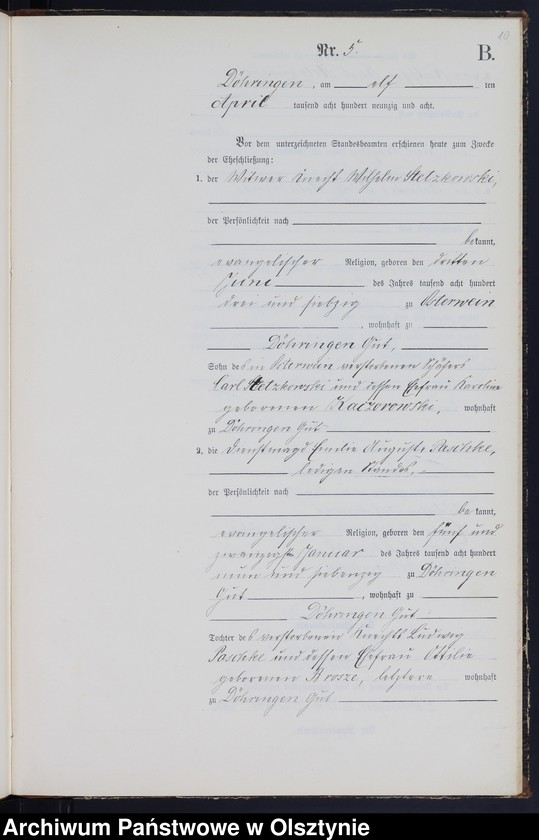 10
Nr. 5.
B.
Döhringen, am elf ten
April tausend acht hundert neunzig und acht.
Vor dem unterzeichneten Standesbeamten erschienen heute zum Zwecke
der Eheschließung:
1. der Witwer Knecht Wilhelm Stelzkowski,
der Persönlichkeit nach
bekannt,
evangelischer Religion, geboren den dritten
Juni des Jahres tausend acht hundert
drei und siebzig zu Osterwein
, wohnhaft zu
Döhringen Gut,
Sohn des in Osterwein verstorbenen Schäfers
Carl Stelzkowski und dessen Ehefrau Karoline
geborenen Kaczorowski, wohnhaft
zu Döhringen Gut
2. die Dienstmagd Emilie Auguste Paschke,
ledigen Standes,
der Persönlichkeit nach
bekannt,
evangelischer Religion, geboren den fünf und
zwanzigsten Januar des Jahres tausend acht hundert
neun und siebenzig zu Döhringen
Gut , wohnhaft zu
Döhringen Gut
Tochter des verstorbenen Knechts Ludwig
Paschke und dessen Ehefrau Ottilie
geborenen Brosze, letztere wohnhaft
zu Döhringen Gut
Archiwum Państwowe w Olsztynie